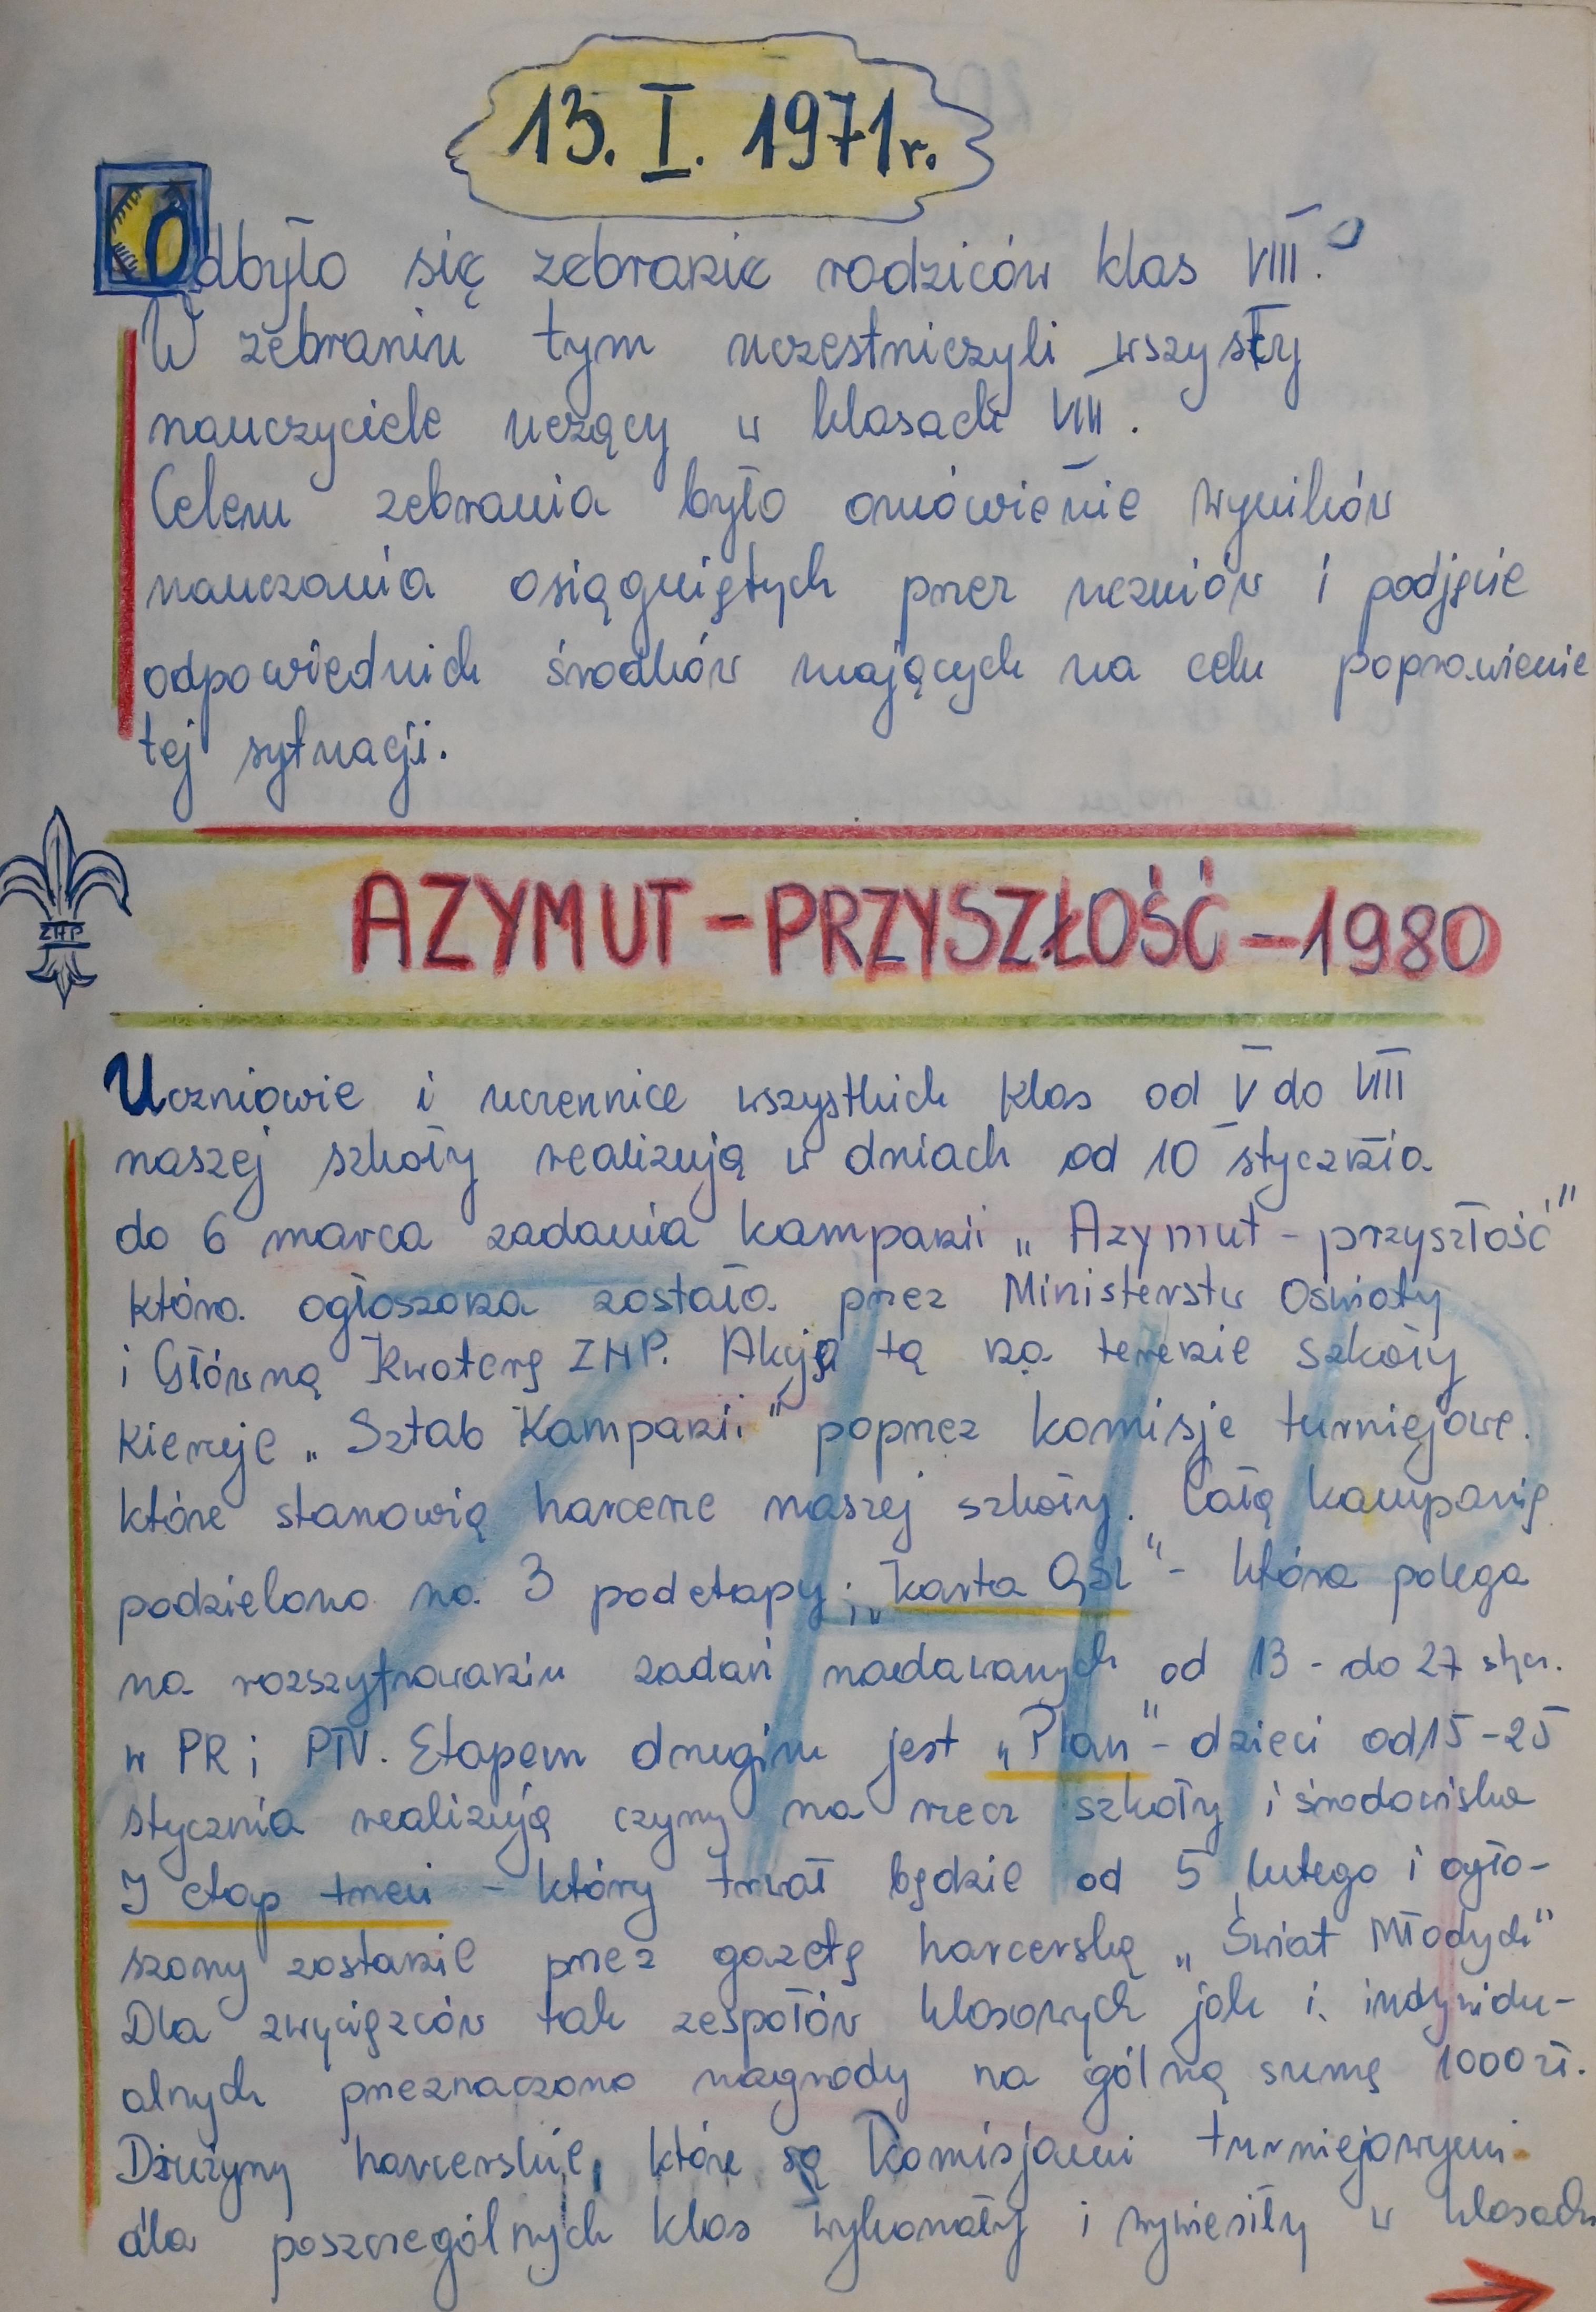 13. I. 1971r.
Odbyło się zebranie rodziców klas VIII.
W zebraniu tym uczestniczyli wszyscy
nauczyciele uczący w klasach VIII.
Celem zebrania było omówienie wyników
nauczania osiągniętych przez uczniów i podjęcie
odpowiednich środków mających na celu poprawienie
tej sytuacji.
ZHP
AZYMUT - PRZYSZŁOŚĆ - 1980
Uczniowie i uczennice wszystkich klas od V do VIII
naszej szkoły realizują w dniach od 10 stycznia
do 6 marca zadania kampanii „Azymut - przyszłość"
która ogłoszona została przez Ministerstw Oświaty
i Główną Kwaterę ZHP. Akcją tą na terenie szkoły
kieruje „Sztab Kampanii" poprzez komisje turniejowe.
które stanowią harcerze naszej szkoły. Całą kampanię
podzielono na 3 podetapy; „karta QSL" - która polega
na rozszyfrowaniu zadań nadawanych od 13 - do 27 stycz.
w PR i PTV. Etapem drugim jest „Plan" - dzieci od 15 - 25
stycznia realizują czyny na rzecz szkoły i środowiska
I etap trzeci - który trwał będzie od 5 lutego i ogło-
szony zostanie przez gazetę harcerską „Świat Młodych"
Dla zwycięzców tak zespołów klasowych jak i indywidu-
alnych przeznaczono nagrody na gólną sumę 1000 zł.
Drużyny harcerskie, które są komisjami turniejowymi
dla poszczególnych klas wykonały i wywiesiły w klasach